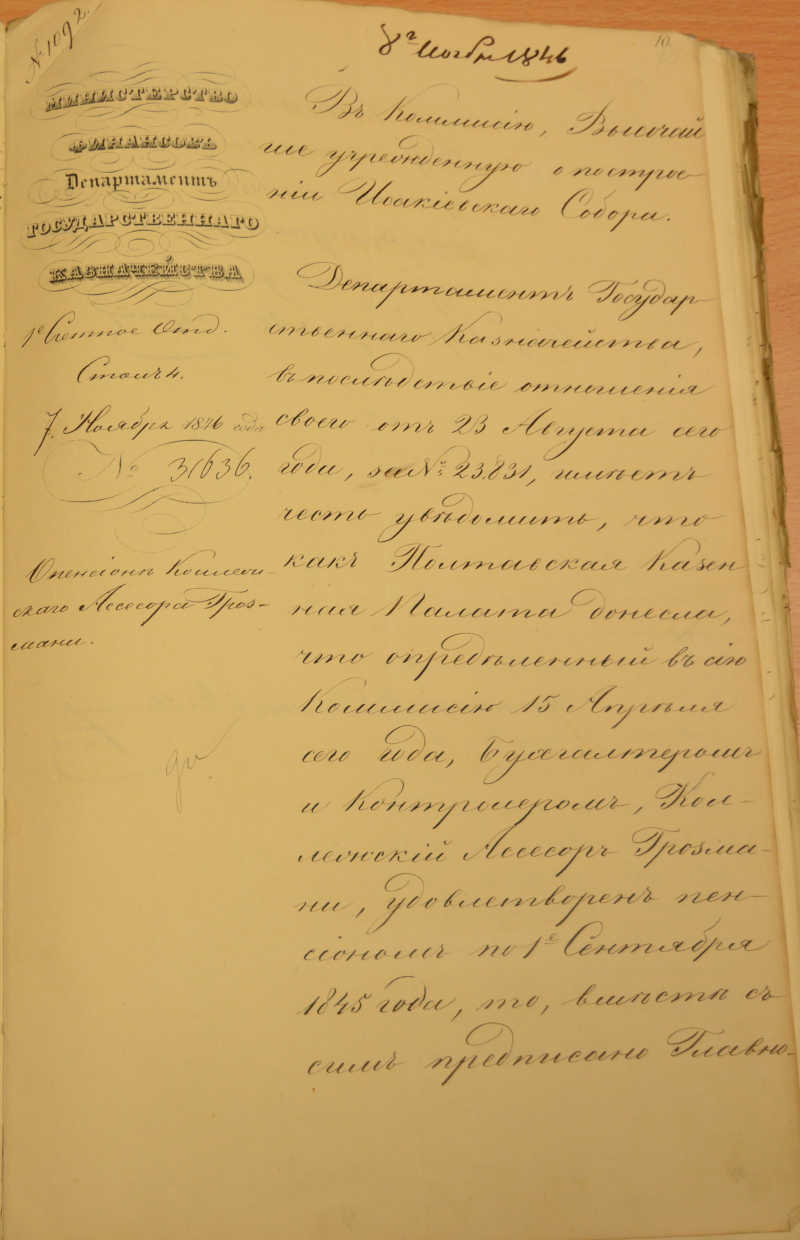 № 1092.
8го Ноября 1846
10
МИНИСТЕРСТВО
ФИНАНСОВЪ
Департаментъ
ГОСУДАРСТВЕННАГО
КАЗНАЧЕЙСТВА
1е Счетное Отд.
Столъ 4.
7 Ноября 1846 года
№ 31636.
О пенсіонѣ Коллеж-
скаго Ассесора Гроз-
мани.
Въ Коммисію, Высочай
ше учрежденную о построе-
ніи Исакіевскаго Собора.
Департаментъ Государ-
ственнаго Казначейства,
въ послѣдствіе отношенія
своего отъ 23 Августа сего
года, за № 23.831, имѣетъ
честь увѣдомить, что
какъ Полтавская Казен
ная Палата донесла,
что опредѣленный въ сію
Коммисію 15 Апрѣля
сего года, Бухгалтеромъ
и Контролеромъ, Кол-
лежскій Ассесоръ Грозма-
ни, удовлетворенъ пен-
сіономъ по 1е Сентября
1845 года, то, вмѣстѣ съ
симъ предписано Главно-